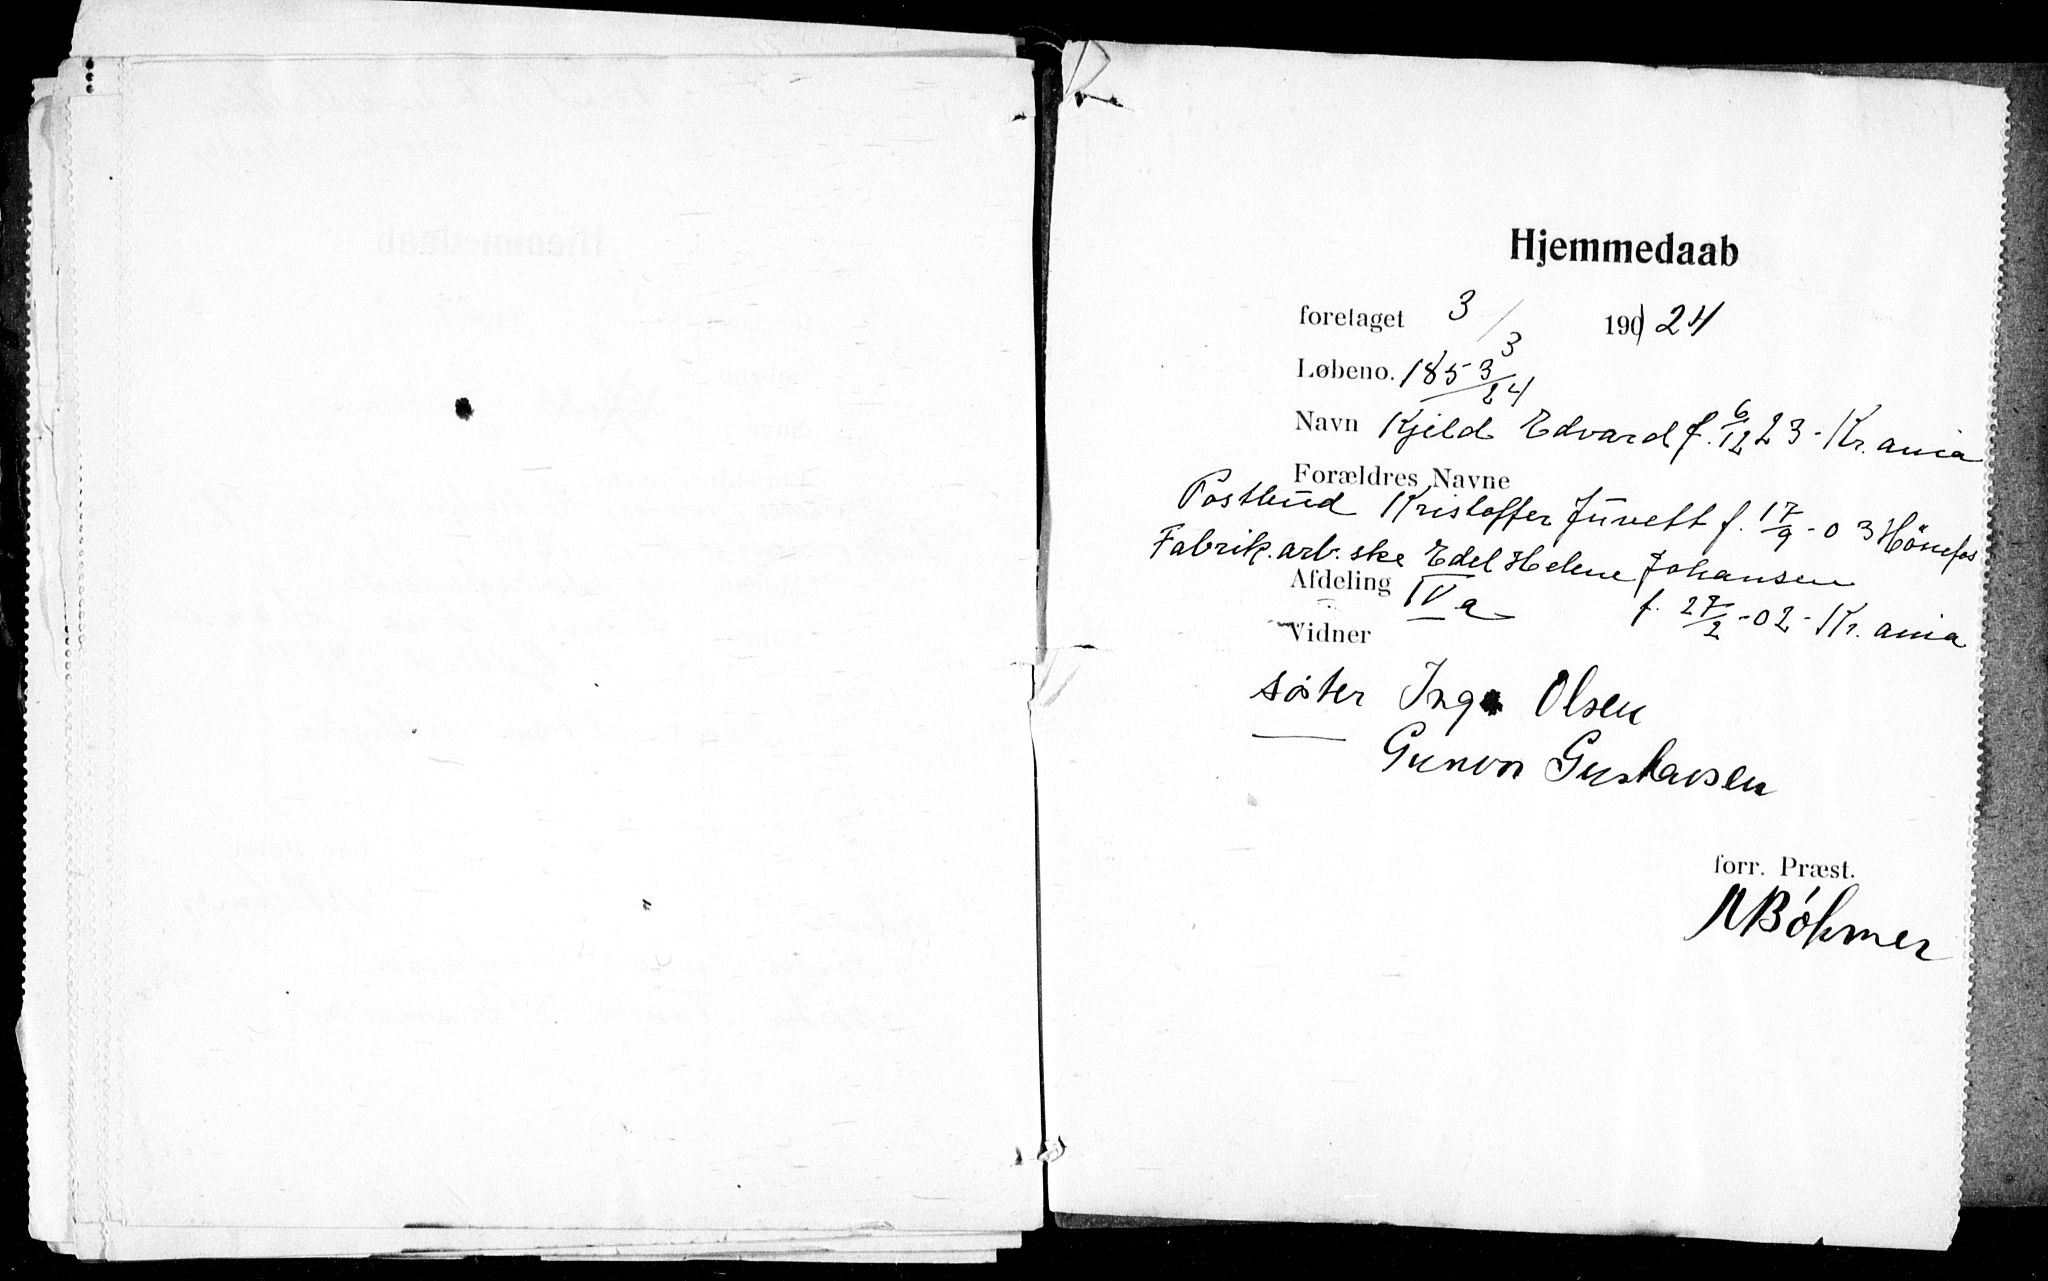 Hjemmedaab
foretaget 3/3 190 24
Løbeno. 1853 3/24
Navn Kjeld Edvard f. 6/12 23 - Kr.ania
Forældres Navne
Postbud Kristoffer Juvett f. 17/9 - 03 Hönefos
Fabrik.arb.ske Edel Helene Johansen
Afdeling IV a f. 27/2 - 02 - Kr.ania
Vidner
søster Inga Olsen
— Gunvor Gustavsen
forr. Præst.
Bøhmer